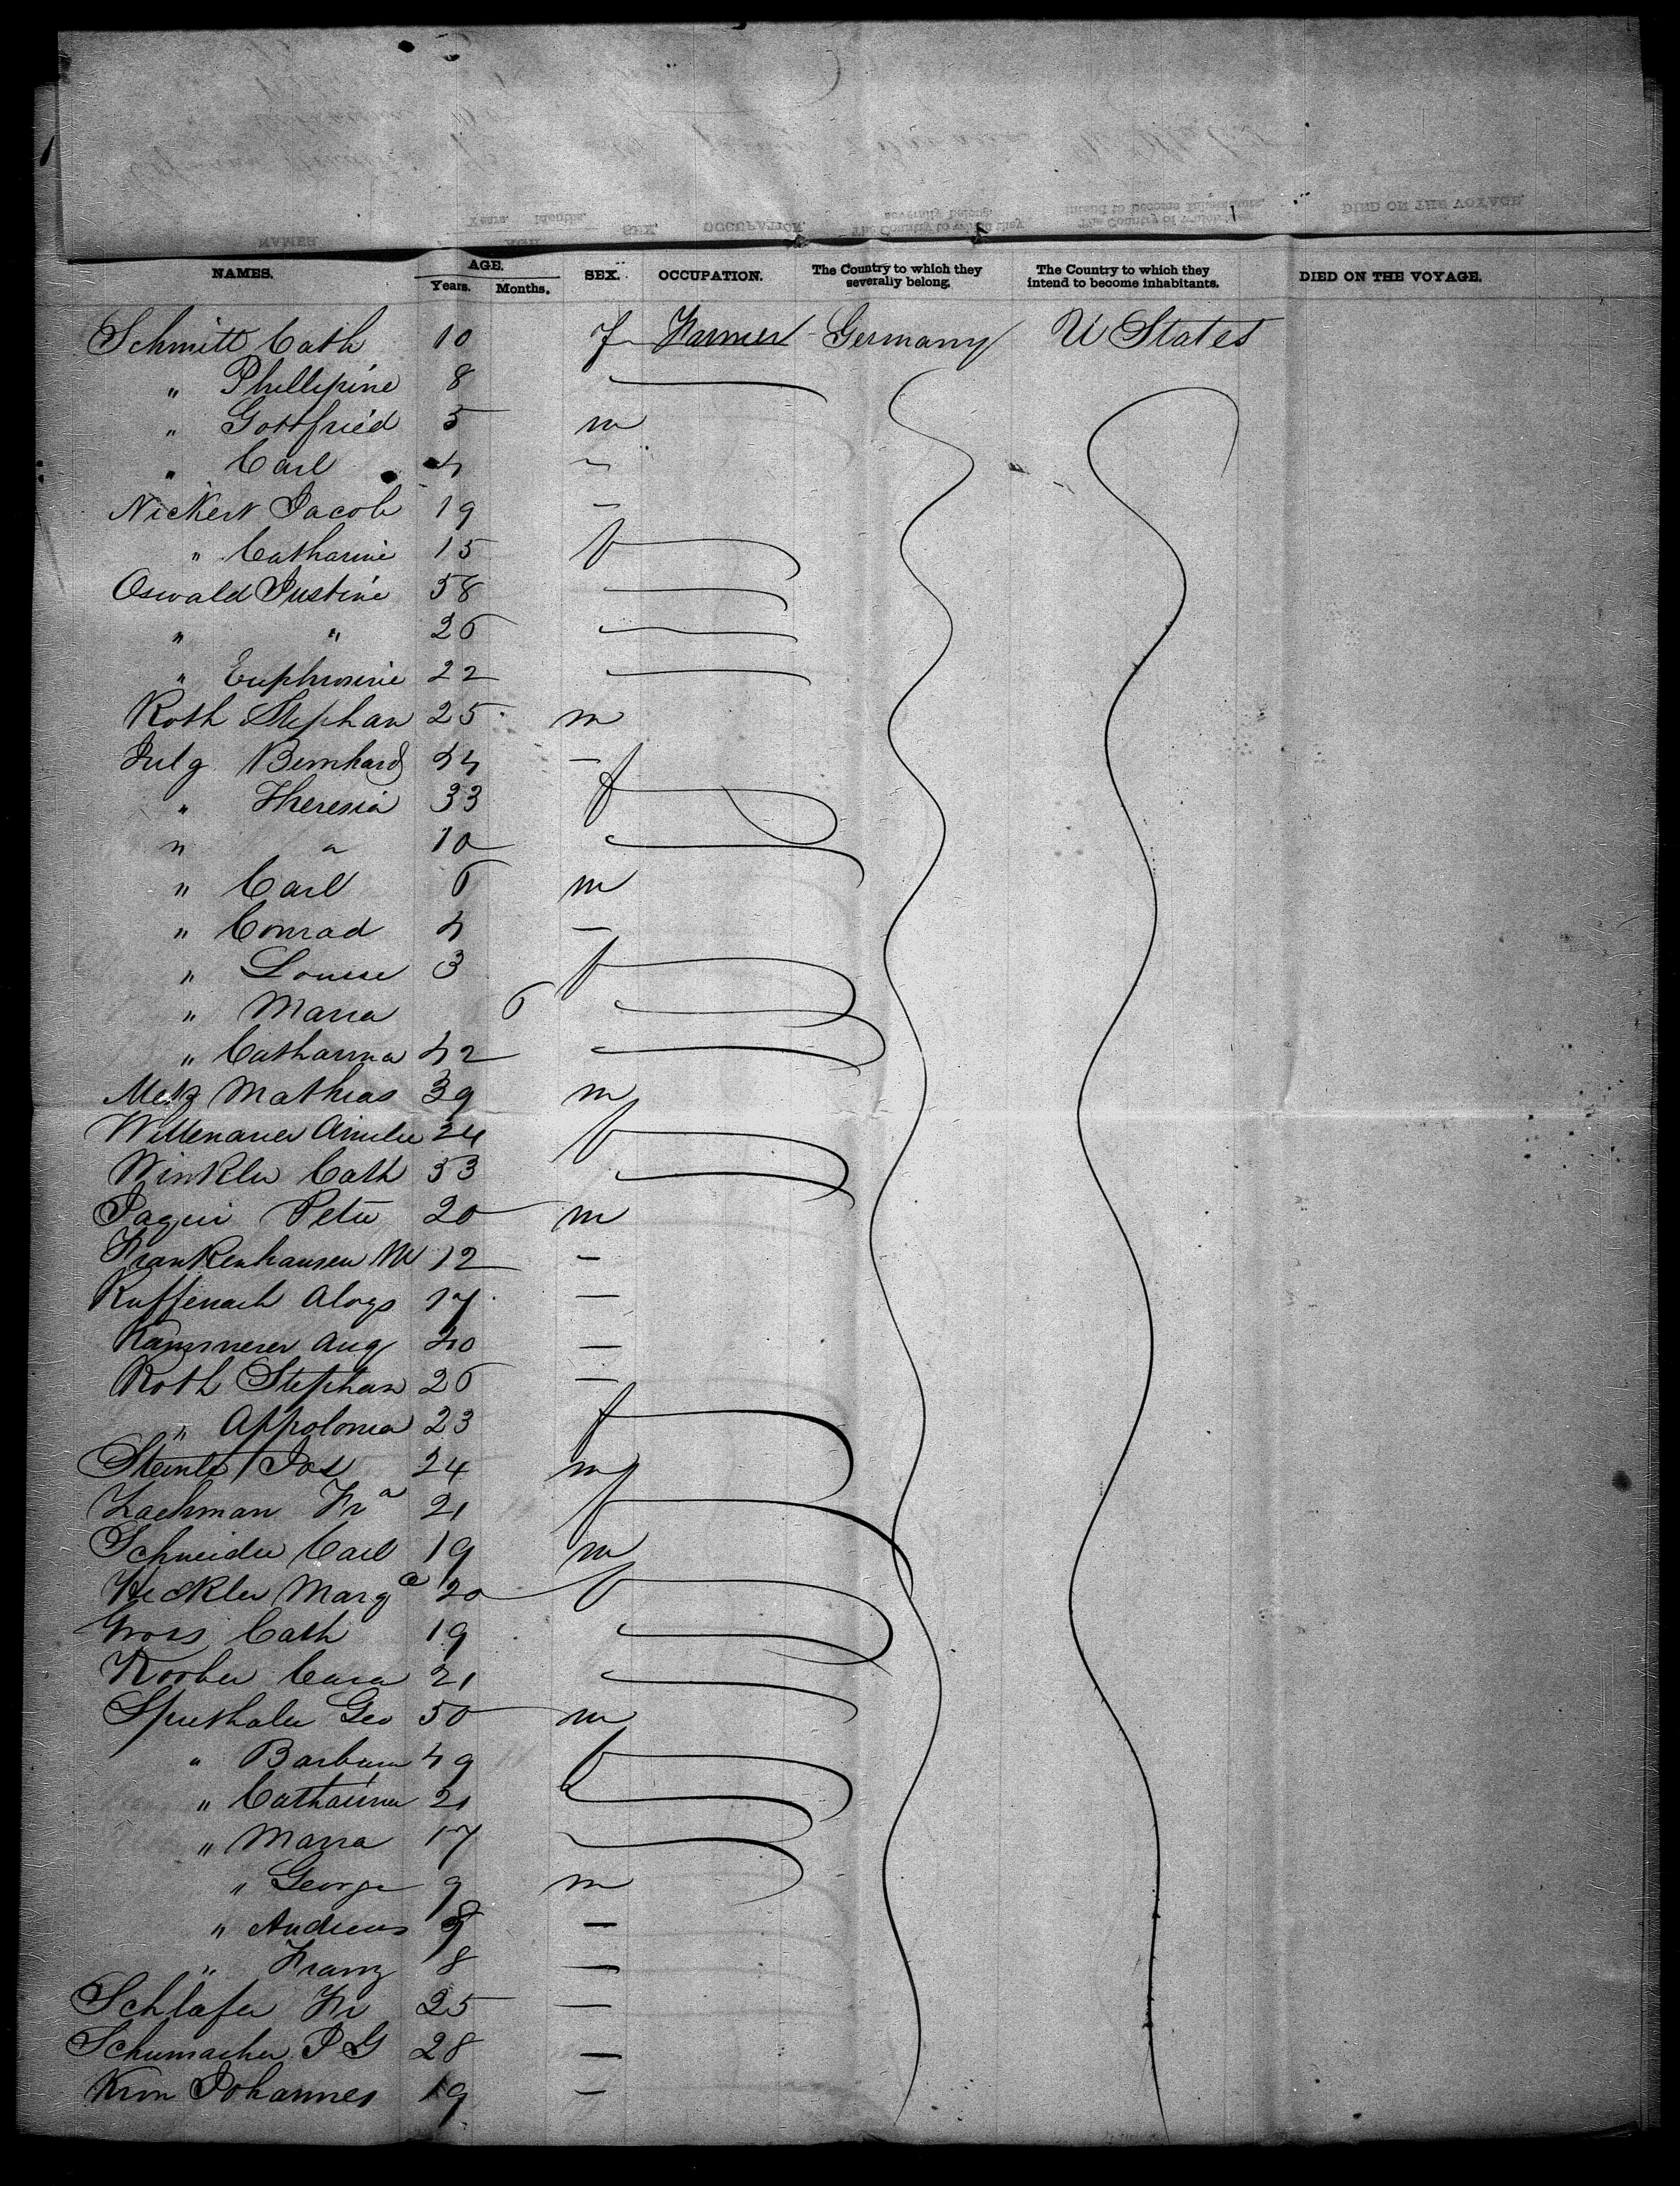 NAMES. AGE. Years. Months. SEX. OCCUPATION. The Country to which they severally belong. The Country to which they intend to become inhabitants. DIED ON THE VOYAGE.
Schmitt Cath 10 f Farmer Germany U States
" Phillipine 8
" Gottfried 5 m
" Carl 4 "
Nickert Jacob 19 —
" Catharine 15 f
Oswald Justine 58
" " 26
" Euphrosine 22
Roth Stephan 25 m
Julg Bernhard 44 —
" Theresia 33 f
" " 10
" Carl 6 m
" Conrad 4 —
" Louise 3 f
" Maria 6
" Catharina 42
Metz Mathias 39 m
Wittenauer Amelie 24 f
Winkler Cath 53
Jaqui Peter 20 m
Frankenhausen M 12 —
Ruffenach Aloys 17 —
Kammerer Aug 40 —
Roth Stephan 26 —
" Appolonia 23 f
Jos 24 m
Lachman Fr a 21 f
Schneider Carl 19 m
Heckler Marg a 20 f
Gross Cath 19
Korber 21
Geo 50 m
" Barbara 49 f
" Catharina 21
" Maria 17
" George 9 m
" Andreas 9 —
" Franz 8 —
Schlafer Fr 25 —
Schumacher J G 28 —
Johannes 19 —